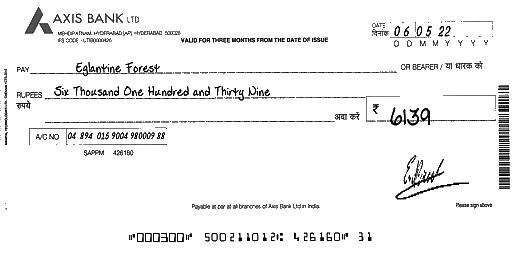 AXIS BANK LTD
MEHDIPATNAM, HYDERABAD [AP] HYDERABAD 500028
IFS CODE - UTIB0000426
VALID FOR THREE MONTHS FROM THE DATE OF ISSUE
DATE
दिनांक 06 05 22
D D M M Y Y Y Y
PAY Eglantine Forest OR BEARER / या धारक को
RUPEES Six Thousand One Hundred and Thirty Nine
रुपये अदा करें ₹ 6139
A/C NO 04 894 015 9004 980009 88
SAPPM 426160
Payable at par at all branches of Axis Bank Ltd in India.
Please sign above
⑈000300⑈ 500211012⑆ 426160⑈ 31